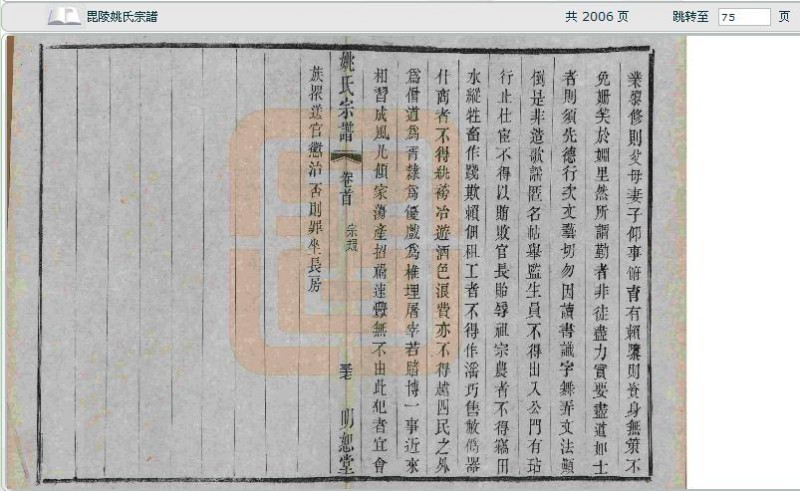 毘陵姚氏宗譜
共 2006 页
跳转至 75 页
業黎修則父母妻子仰事俯育有賴隳則資身無策不
免姍笑於鄉里然所謂勤者非徒盡力實要盡道如士
者則須先德行次文藝切勿因讀書識字舞弄文法顛
倒是非造歌謡匿名帖舉監生員不得出入公門有玷
行止仕宦不得以賄敗官長貽辱祖宗農者不得竊田
水縱牲畜作踐欺賴佃租工者不得作淫巧售敝僞器
什商者不得紈袴冶遊酒色浪費亦不得越四民之外
爲僧道爲胥隸爲優戲爲椎埋屠宰若賭博一事近來
相習成風凡傾家蕩產招禍速釁無不由此犯者宜會
姚氏宗譜 卷首 宗規 明恕堂
族撪送官懲治否則罪坐長房